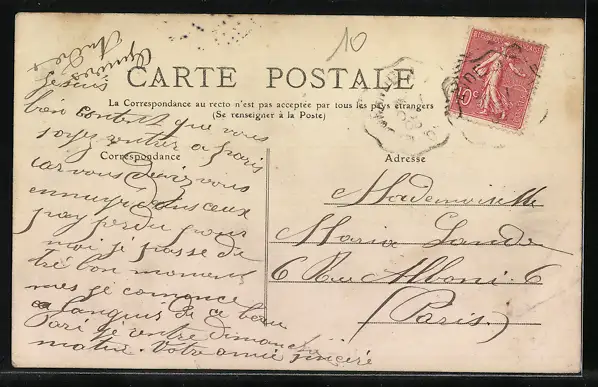 10
CARTE POSTALE
La Correspondance au recto n'est pas acceptée par tous les pays étrangers
(Se renseigner à la Poste)
Correspondance
Adresse
je suis
bien content que vous
soyez rentrer a paris
car vous deviez vous
ennuyer dans ceux
pay perdu pour
moi je passe de
tré bon moment
mes je comence
a languis de ce beau
Pari je rentre dimanche
matin. Votre amie sincère
Mademoiselle
Maria Lande
6 Rue Alboni 6
(Paris.)
10c